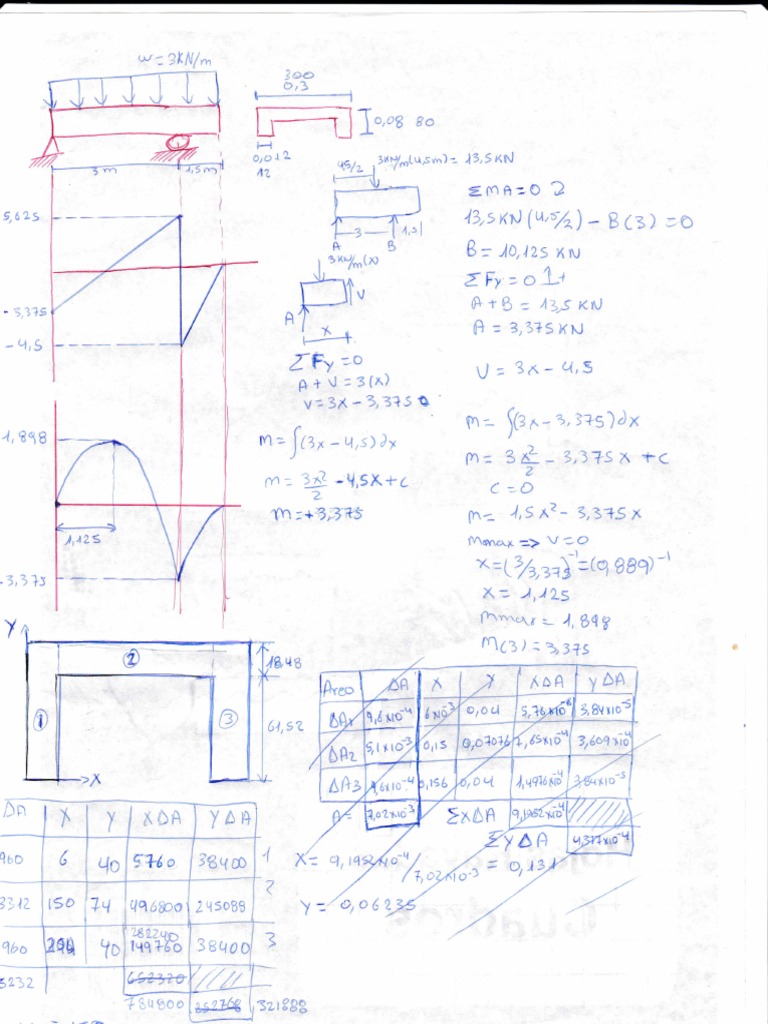 w = 3KN/m
300
0,3
0,08 80
0,012
12
3m
1,5m
45/2
3KN/m(4,5m) = 13,5KN
3
1,5
A
B
ΣMA = 0
13,5KN(4,5/2) - B(3) = 0
B = 10,125 KN
ΣFy = 0 ↑+
A + B = 13,5 KN
A = 3,375KN
V = 3x - 4,5
5,625
-3,375
-4,5
3KN/m(x)
A
V
X
ΣFy = 0
A + V = 3(x)
V = 3x - 3,375
m = ∫(3x - 4,5)dx
m = 3x²/2 - 4,5x + c
m = +3,375
m = ∫(3x - 3,375)dx
m = 3x²/2 - 3,375x + c
c = 0
m = 1,5x² - 3,375x
mmax => V = 0
x = (3/3,375)⁻¹ = (0,889)⁻¹
x = 1,125
mmax = 1,898
M(3) = 3,375
1,898
1,125
-3,375
Y
②
①
③
X
18,48
61,52
Area ΔA X Y XΔA YΔA
ΔA1 9,6x10⁻⁴ 6x10⁻³ 0,04 5,76x10⁻⁶ 3,84x10⁻⁵
ΔA2 5,1x10⁻³ 0,15 0,07076 7,65x10⁻⁴ 3,609x10⁻⁴
ΔA3 9,6x10⁻⁴ 0,156 0,04 1,4976x10⁻⁴ 3,84x10⁻⁵
A= 7,02x10⁻³ ΣXΔA 9,1952x10⁻⁴
ΣYΔA 4,377x10⁻⁴
X = 9,1952x10⁻⁴/7,02x10⁻³ = 0,131
Y = 0,06235
ΔA X Y XΔA YΔA
960 6 40 5760 38400 1
3312 150 74 496800 245088 2
960 294 40 282240 149760 38400 3
5232 652320
784800 252768 321888